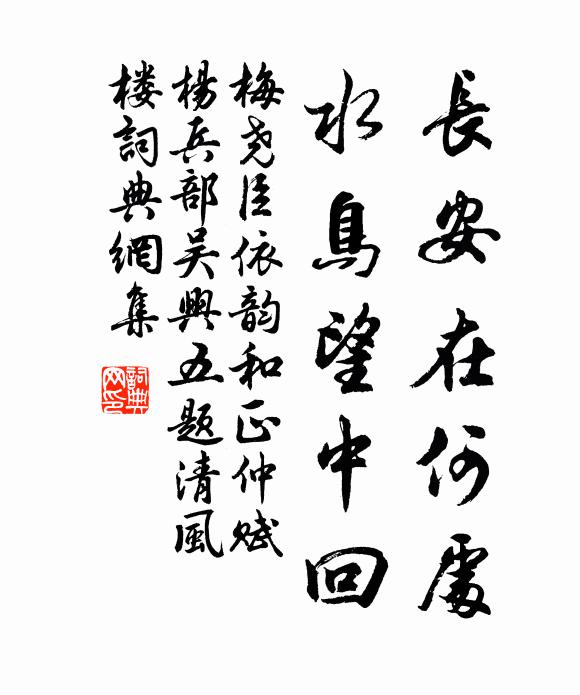 長安在何處
水鳥望中回
梅尧臣依韵和正仲赋
楊兵部吴興五題清風
楼詞典網集
詞典网印